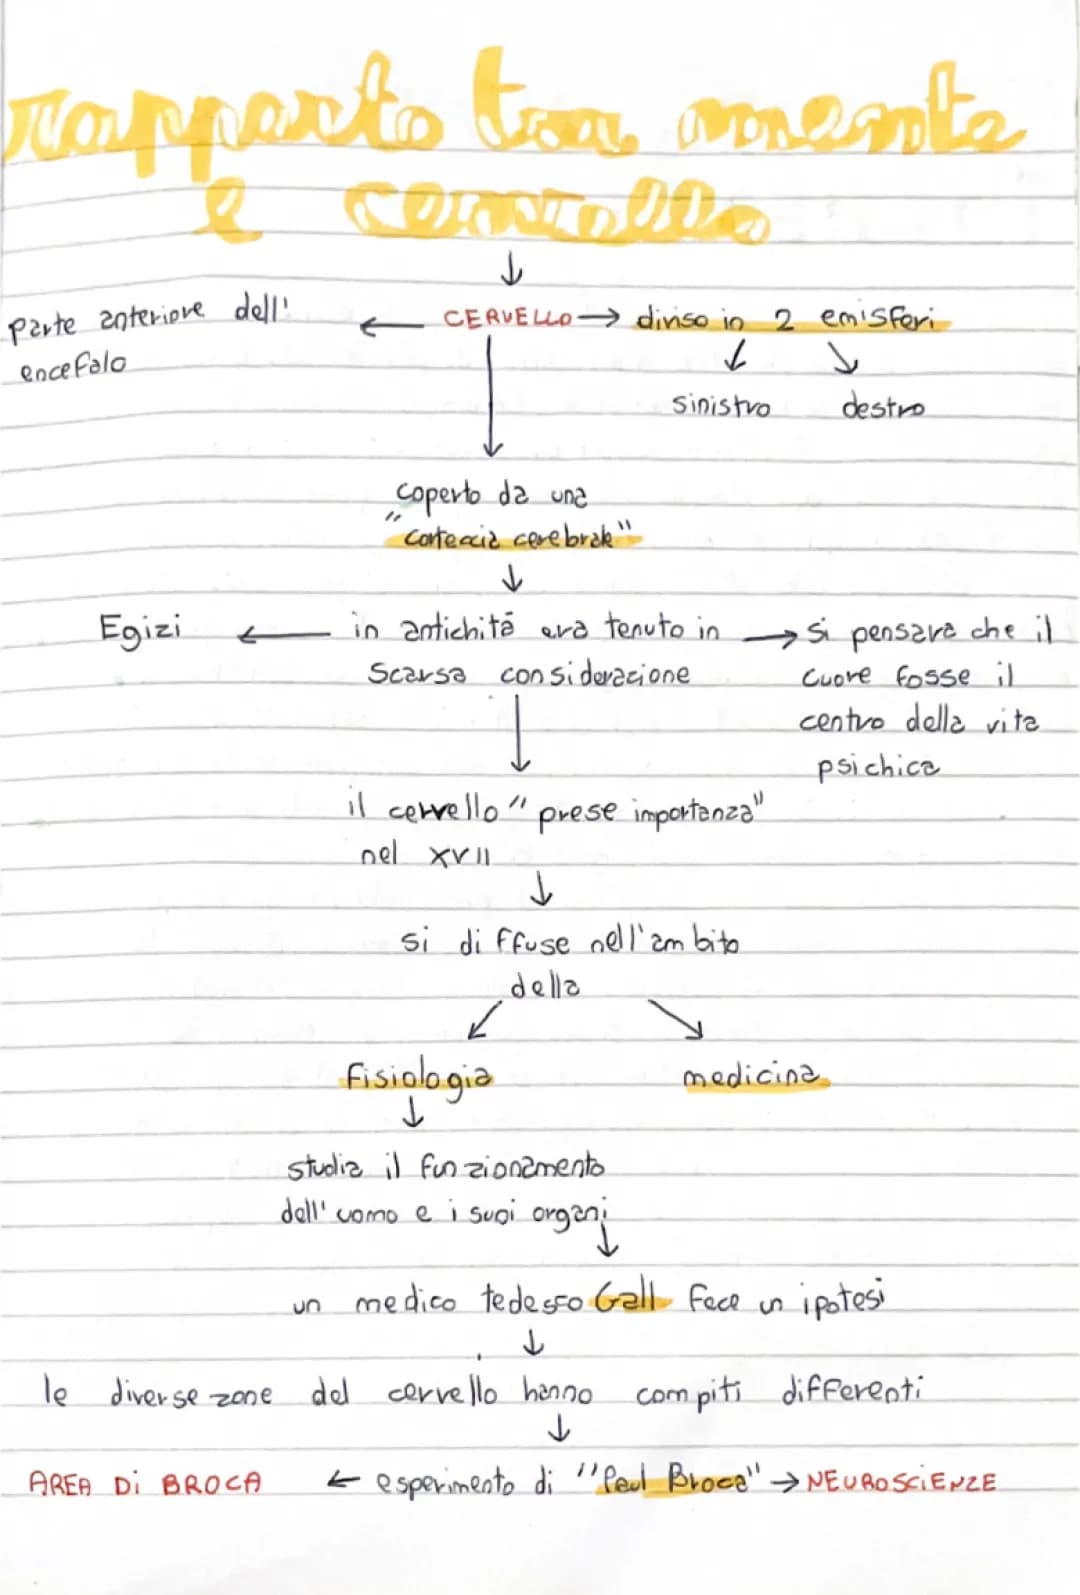 rapporto tra mente
e cervello
↓
parte anteriore dell' ← CERVELLO → diviso in 2 emisferi
encefalo
↓ ↓
sinistro destro
↓
coperto da una
"corteccia cerebrale"
↓
Egizi ← in antichità era tenuto in → si pensava che il
scarsa considerazione cuore fosse il
centro della vita
↓ psichica
il cervello "prese importanza"
nel XVII
↓
si diffuse nell'ambito
della
↙ ↘
fisiologia medicina
↓
studia il funzionamento
dell'uomo e i suoi organi
↓
un medico tedesco Gall fece un ipotesi
↓
le diverse zone del cervello hanno compiti differenti
↓
AREA Di BROCA ← esperimento di "Paul Broca" → NEUROSCiENZE